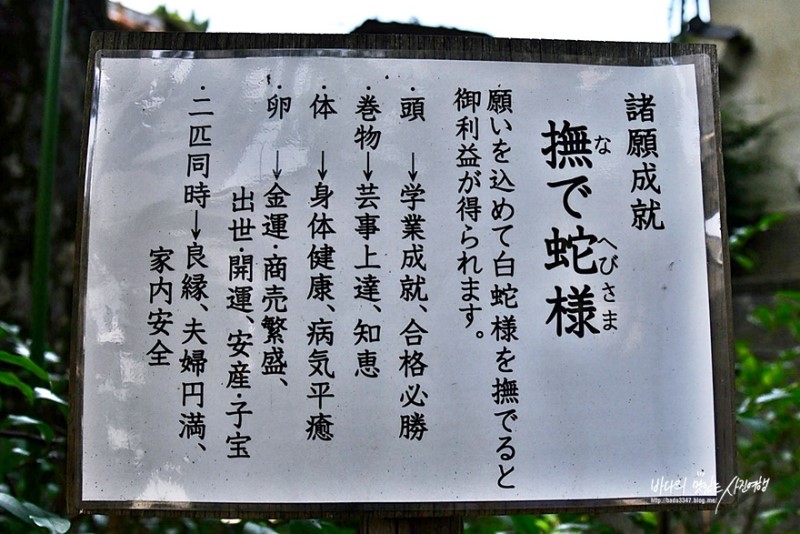 諸願成就
撫で蛇様
な
へびさま
願いを込めて白蛇様を撫でると
御利益が得られます。
・頭 →学業成就、合格必勝
・巻物→芸事上達、知恵
・体 →身体健康、病気平癒
・卵 →金運・商売繁盛、
出世・開運、安産・子宝
・二匹同時→良縁、夫婦円満、
家内安全
바다의 맛있는 사진여행
http://bada3347.blog.me/